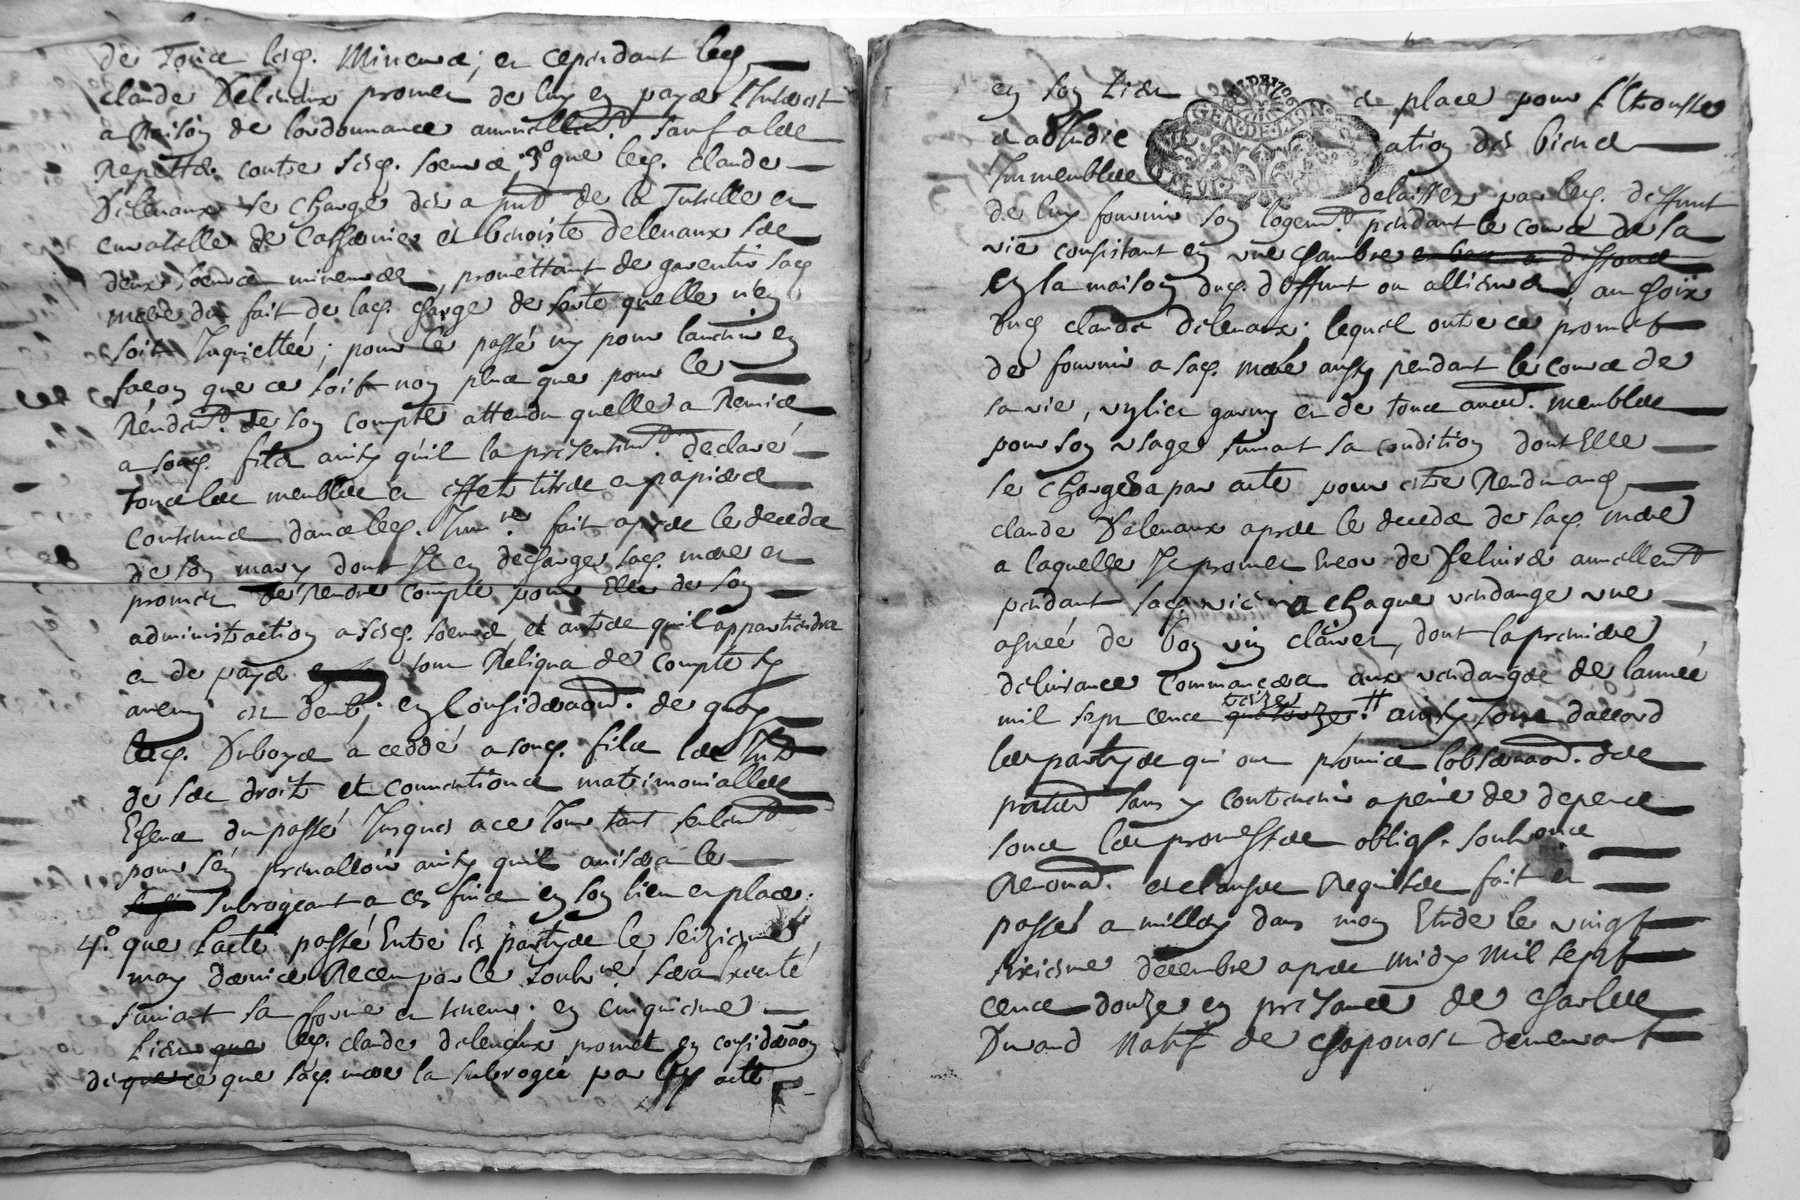 de Toute lesd. Mineures; et cependant led.
claude Delenaux promet de luy en payer l'Interest
a Raison de lordonnance annuellemt. sauf a les
Repetter contre sesd. soeures 3o que led. claude
Delenaux se charge des a put de la Tutelle et
curatelle de Catherine et benoiste delenaux ses
deux soeures mineures, promettant de garentir sad.
mere du fait de lad. charge de sorte quelle n'en
soit Inquiettée; pour le passé ny pour laucnir en
facon que ce soit non plus que pour le
Rendemt. de son compte attendu quelle a Remis
a sond. fils ainsy qu'il la presentemt. declaré
Tous les meubles et effets titres et papiers
contenus dans led. Inure fait apres le decedz
de son mary dont Il en decharge sad. mere et
promet de Rendre compte pour Elle de son
administraction a sesd. soeures, et autres quil appartiendra
et de payer tout Reliqua de compte sy
aucun est deub; en Consideraon. de quoy
lad. Duboys a ceddé a sond. fils les Intz
de ses droits et conventions matrimonialles
Escheus du passé Jusques a ce Jour tant seulemt
pour s'en prevalloir ainsy quil avisera le
subrogeant a ces fins en son lieu et place.
4.o que Lacte passé Entre les partyes le seiziesme
may dernier Receu par le soub.né sera Executé
suivant sa forme et teneur. en cinquiesme
Lieu que led. claude delenaux promet en consideraon
de que ce que sad. mere la subrogee par led. acte
en son Lieu et place pour l'hoirie
GEN. DE LION
adjudication des biens
Immeubles delaisses par led. deffunt
de luy fournir son logemt. pendant le cours de sa
vie consistant en une chambre
en la maison dud. deffunt ou allieurs, au choix
dud claude delenaux; lequel outre ce promet
de fournir a sad. mere aussy pendant le cours de
sa vie, un lict garny et de tous autres. meubles
pour son usage suivant sa condition dont Elle
se chargera par acte pour estre Rendu aud.
claude Delenaux apres le decedz de sad. mere
a laquelle Il promet Encor de delivrer annellemt
pendant sad. vie a chaque vendange une
asnée de bon vin clairet, dont la premiere
delivrance Commancera aux vendanges de lannée
mil sept cens treize quatorze. # ainsy sont daccord
les partyes qui ont promis lobservaon. des
presentes sans y contrevenir a peine de depens
sous les promesses obligs. soubsons
Renonaons. et clauses Requises fait et
passé a millery dans mon Etude le vingt
sixiesme decembre apres midy mil sept
cens douze en presance de charles
Durand natif de chaponost demeurant